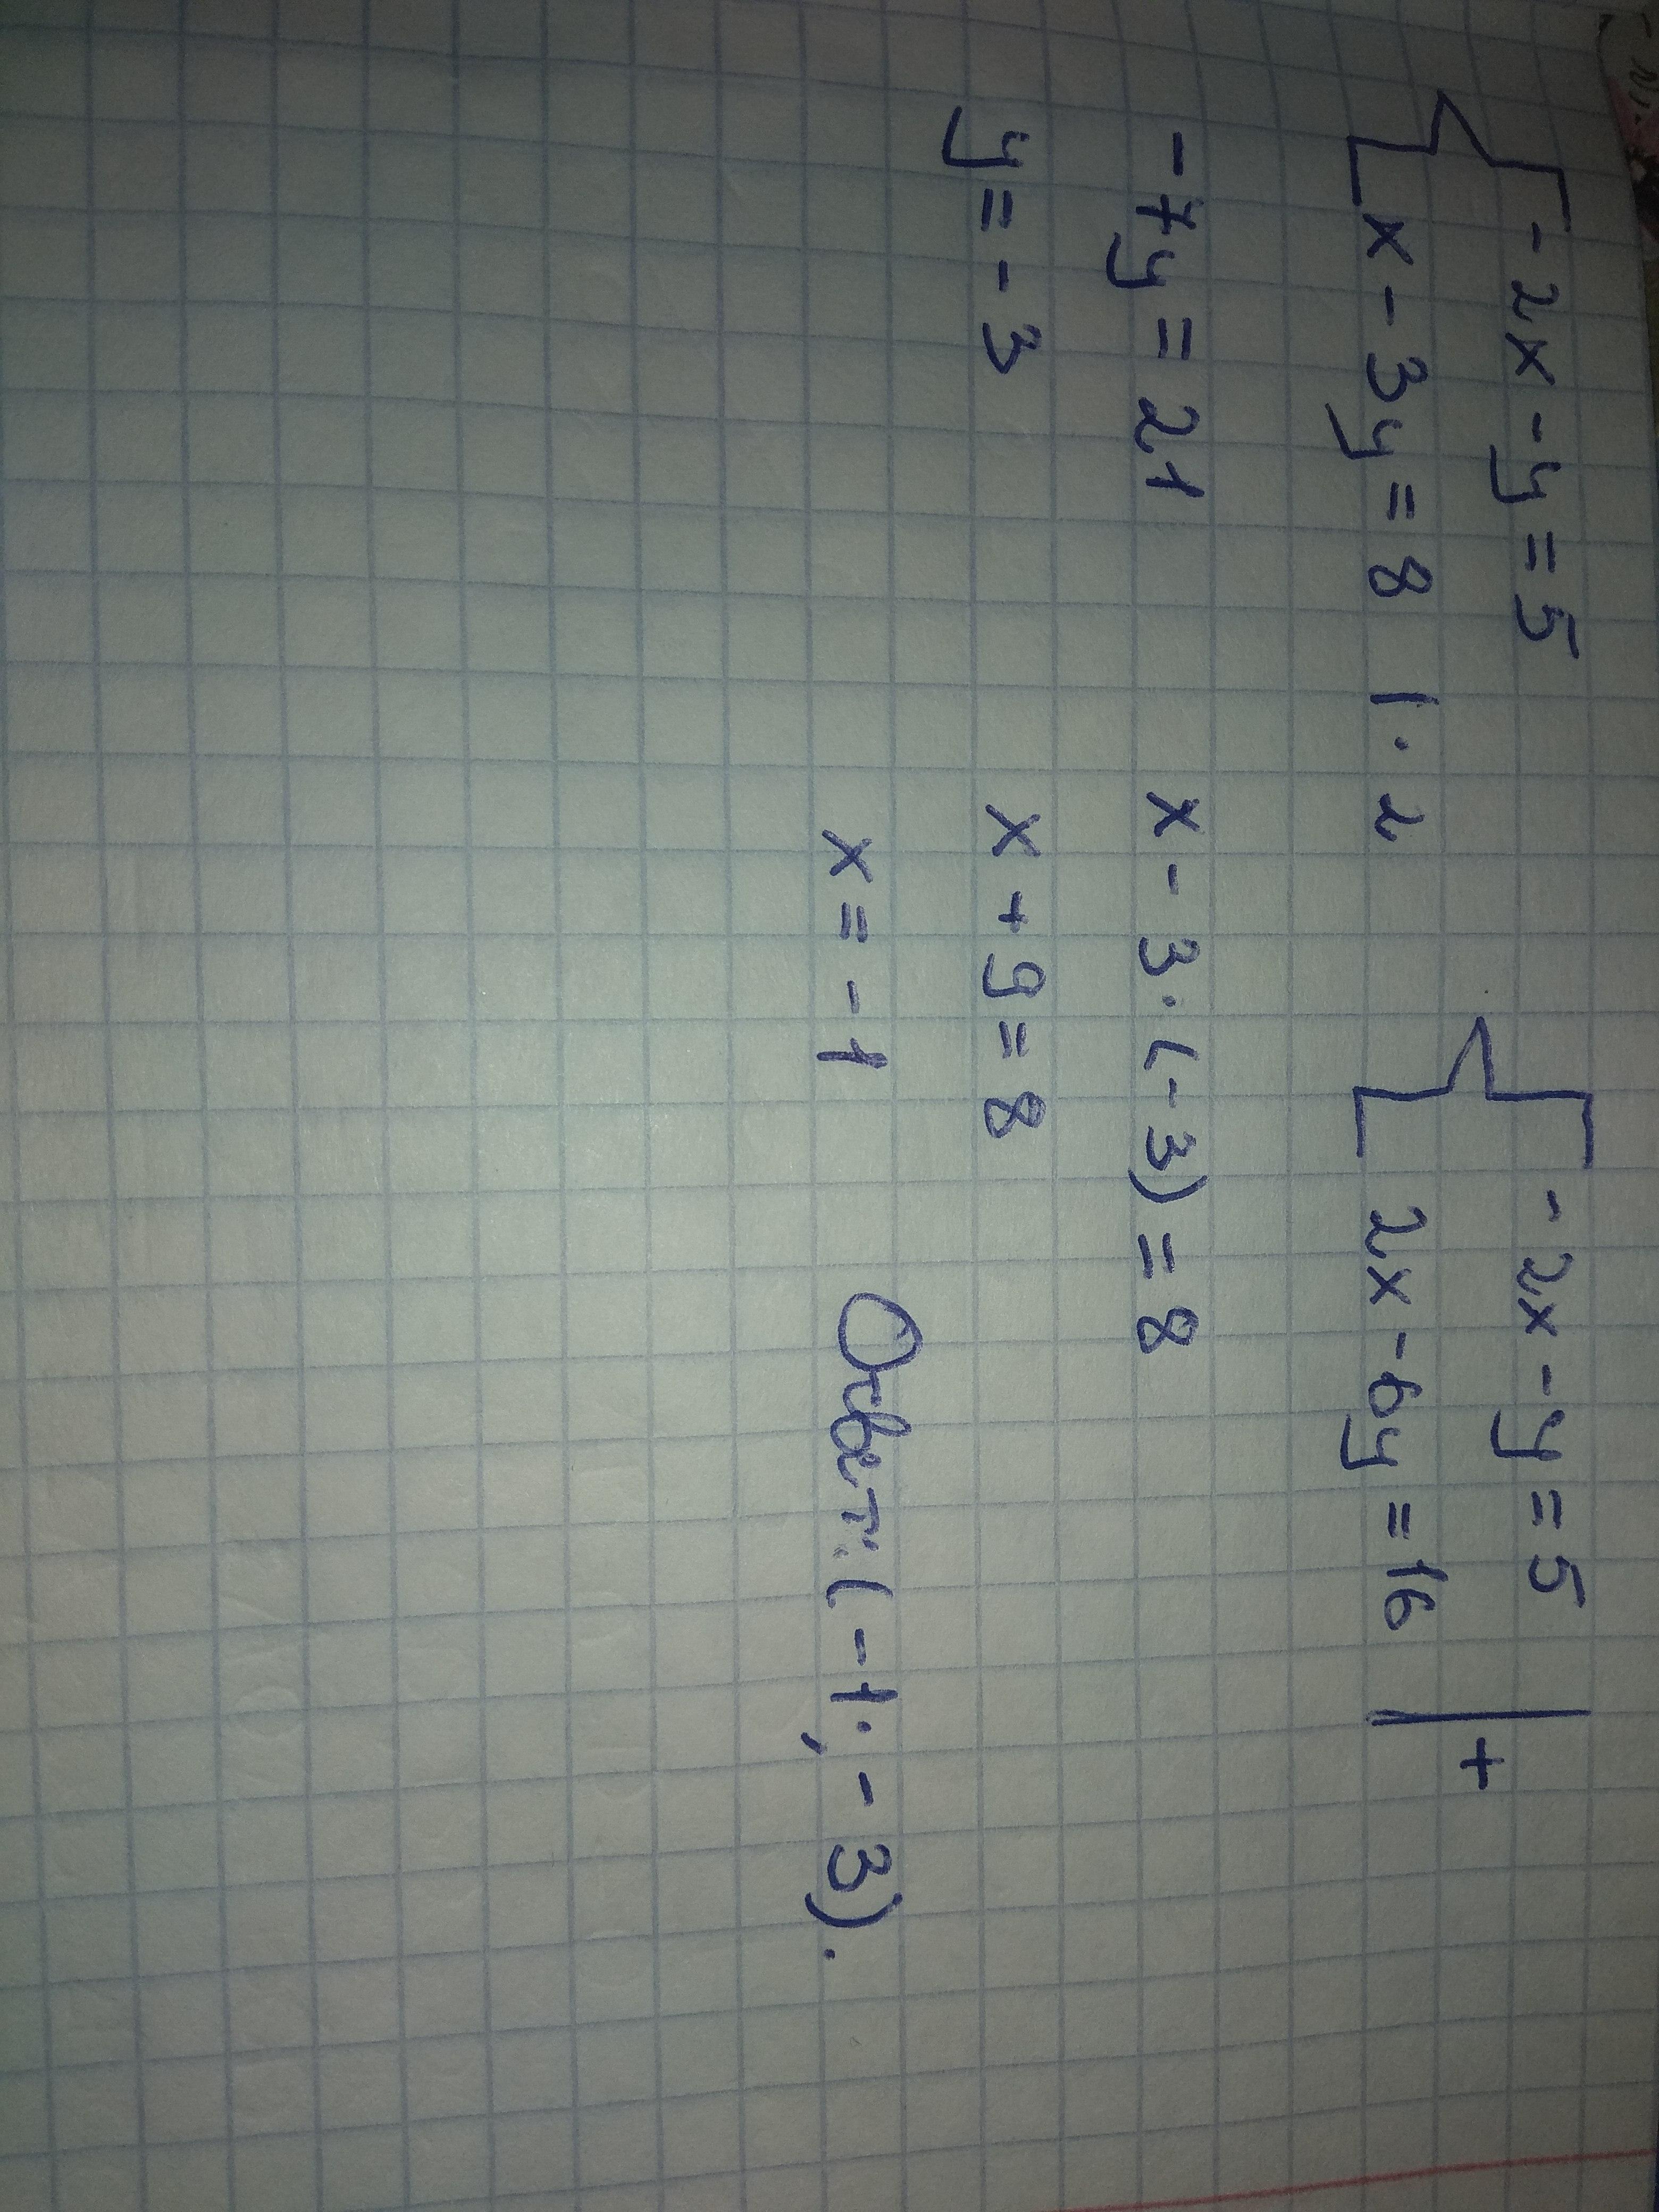 -2x - y = 5
x - 3y = 8 | · 2
-2x - y = 5
2x - 6y = 16 | +
-7y = 21
y = -3
x - 3 · (-3) = 8
x + 9 = 8
x = -1
Ответ: (-1; -3).